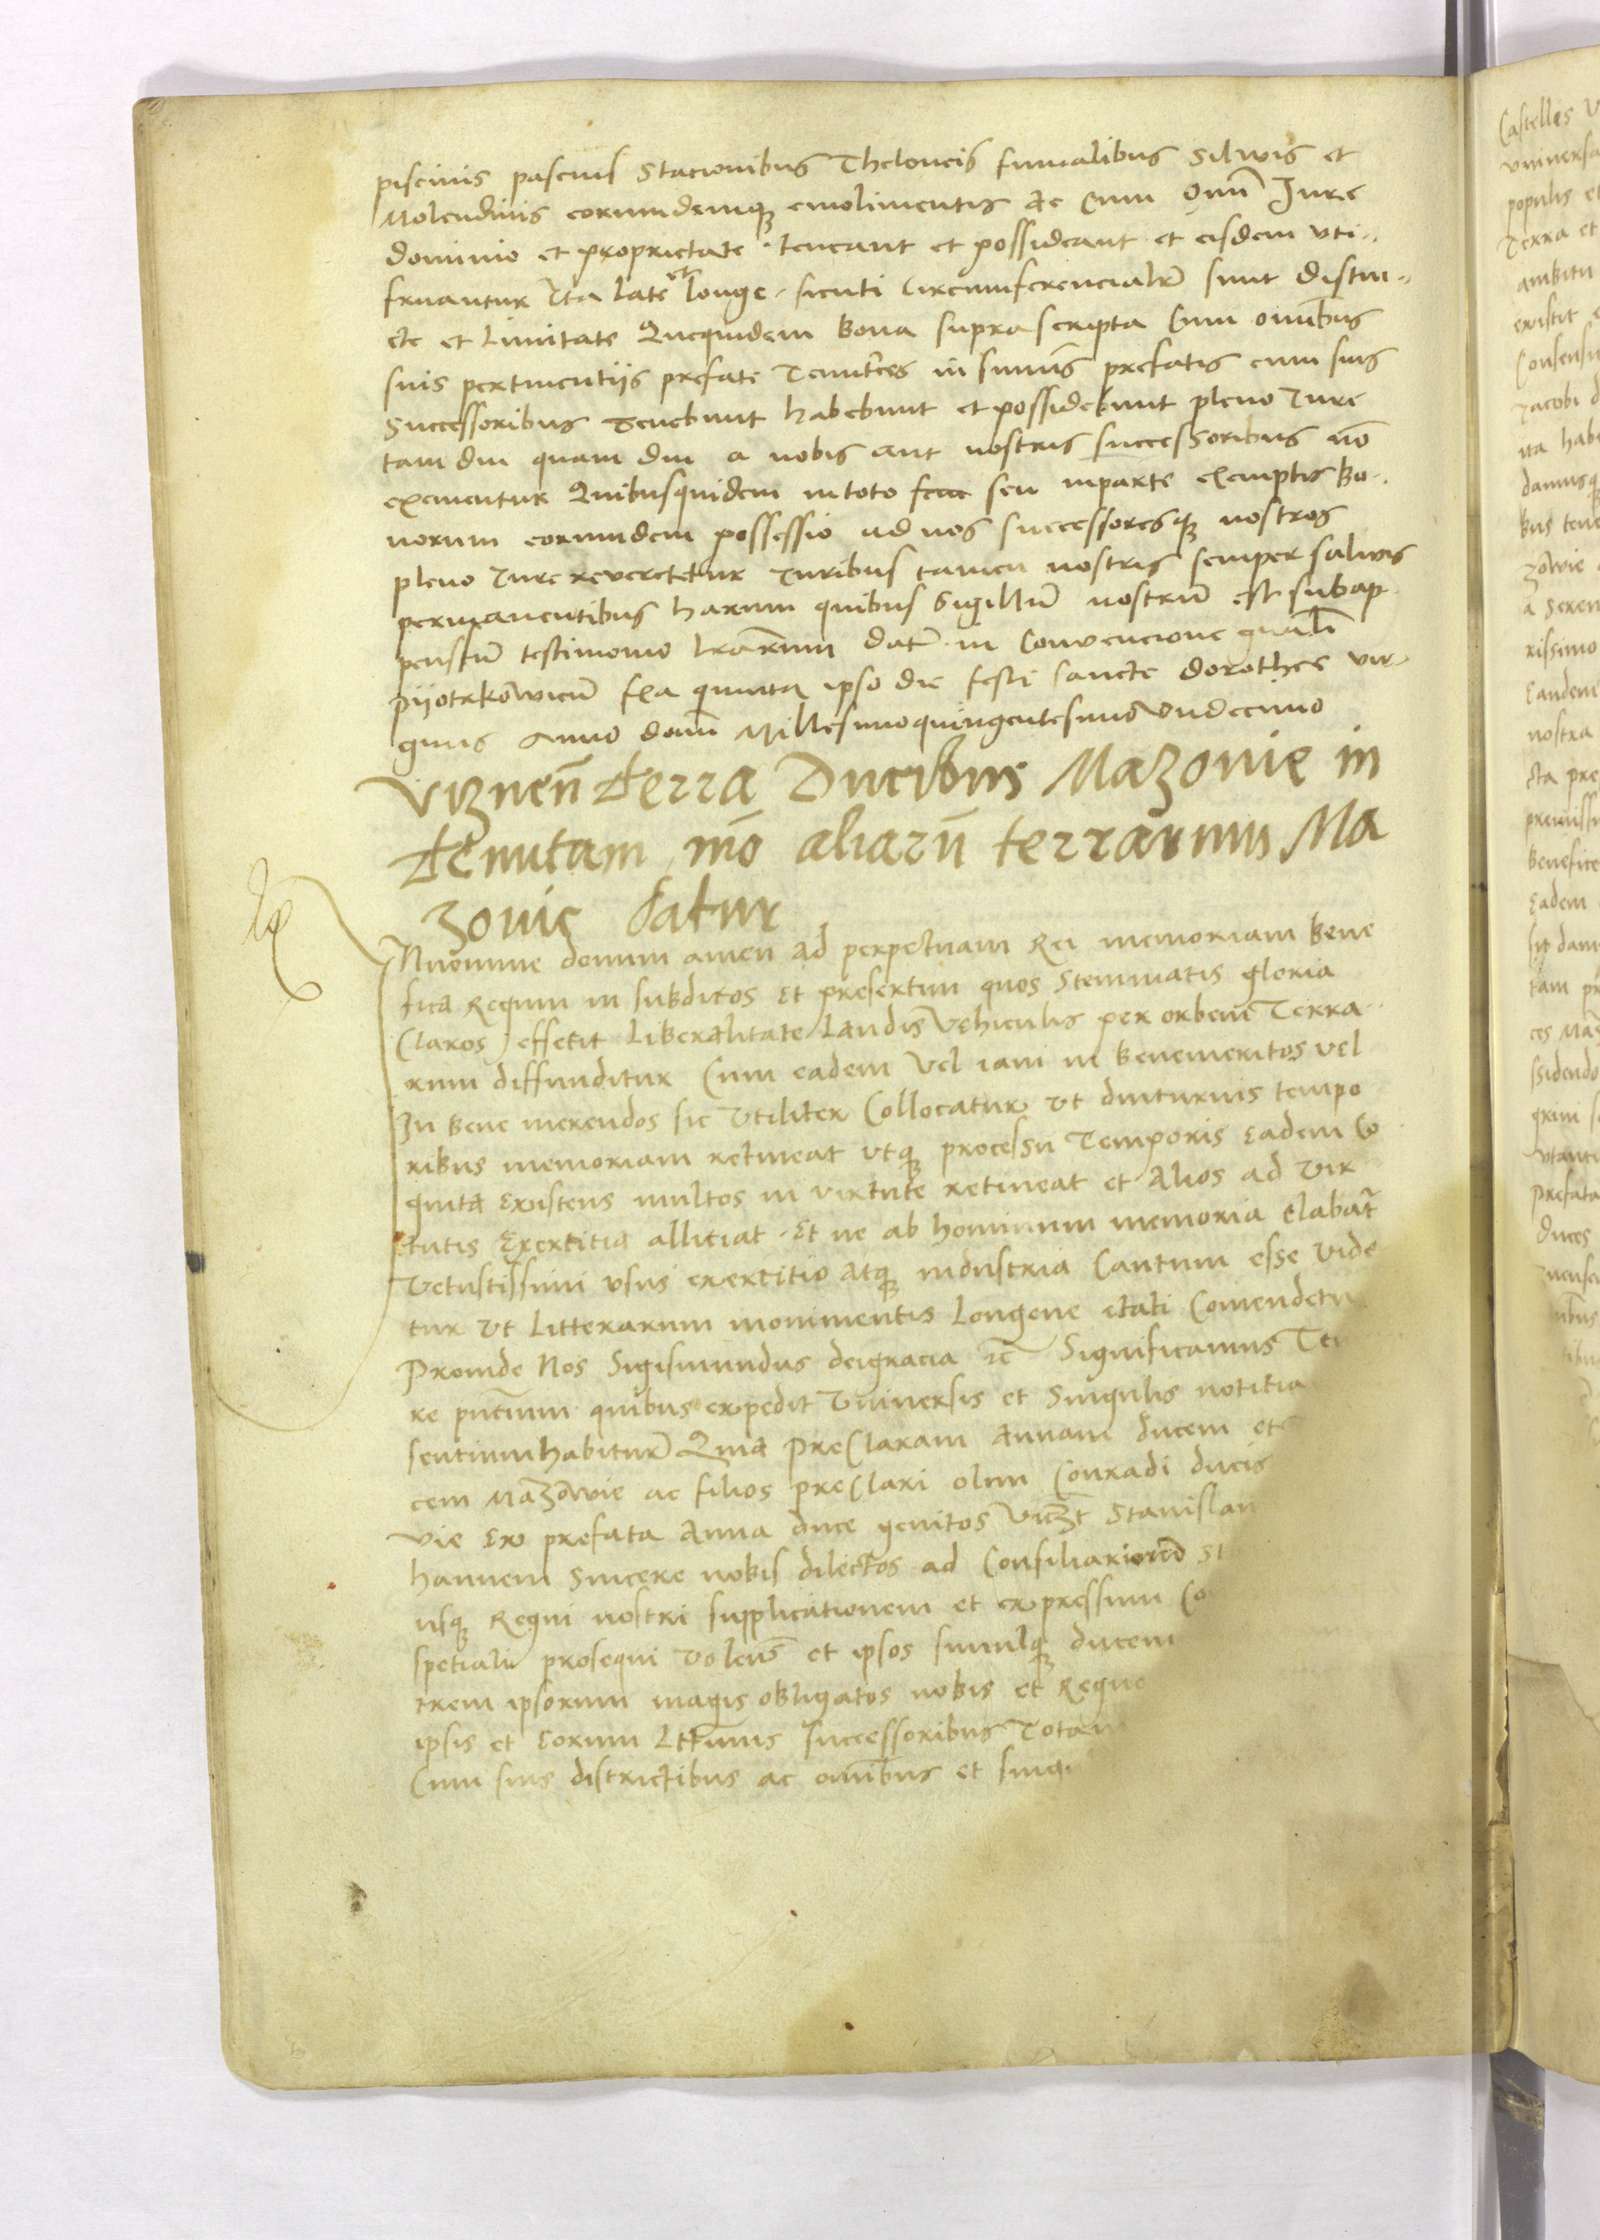 piscinis pascuis Stacionibus Theloneis fumalibus silwis et
Molendinis eorumdemq; emolimentis Ac Cum Omni Jure
dominio et proprietate teneant et possideant et eisdem vti-
fruantur Ita late et longe sicuti Circumferencialr̄ sunt distin-
cte et Limitate Quequidem bona supra scripta Cum omnibus
suis pertinentijs prefate Tenutrices in simul prefatis cum suis
Successoribus Tenebunt habebunt et possidebunt pleno Jure
tam diu quam diu a nobis aut nostris successoribus nō
exementur Quibusquidem in toto seu inparte exemptis bo-
norum eorumdem possessio ad nos successoresq; nostros
pleno Jure reverctetur Juribus tamen nostris semper salwis
permanentibus harum quibus Sigillū nostrū est subap
pensū testimonio lrārum datū in Convencione gnāli
pijotrkowien̄ fɛa quinta ipso die festi sancte dorothee vir-
ginis Anno domī Millesimoquingentesimo Vndecimo
Viznen̄ terra Ducibus Mazovie in
tenutam mō aliarū terrarum Ma
zovie datur
N nomine domini amen ad perpetuam Rei memoriam bene
fica Regum in subditos Et presertim quos Stemmatis gloria
Claros effetit liberalitate Laudis Vehiculis per orbem Terra
rum diffunditur Cum eadem vel iam in benemeritos vel
In bene merendos sic Vtiliter Collocatur ut diuturnis tempo
ribus memoriam retineat utq; processu Temporis Eadem Co
gnita Existens multos in virtute retineat et Alios ad vir
tutis Exertitia alliciat Et ne ab hominum memoria Elabat̄
Vetustissimi usus exertitio Atq; industria Cautum esse vide
tur ut Litterarum monimentis Longeue etati Comendetu
Proinde Nos Sigismundus deigracia etc̄ Significamus Te
re pn̄tium quibus expedit Vniversis et Singulis notitia
sentium habitur̄ Quia preclaram Annam ducem et
cem Mazowie ac filios preclari olim Conradi ducis
vie Ex prefata Anna duce genitos Viczt Stanislau
hannem Sincere nobis dilectos ad Consiliariorum
usq; Regni nostri supplicationem et expressum Co
spetiali prosequi volens et ipsos simulq; ducem
trem ipsorum magis obligatos nobis et Regno
ipsis et Eorum Lttimis successoribus Totam
Cum suis districtibus ac omnibus et sing